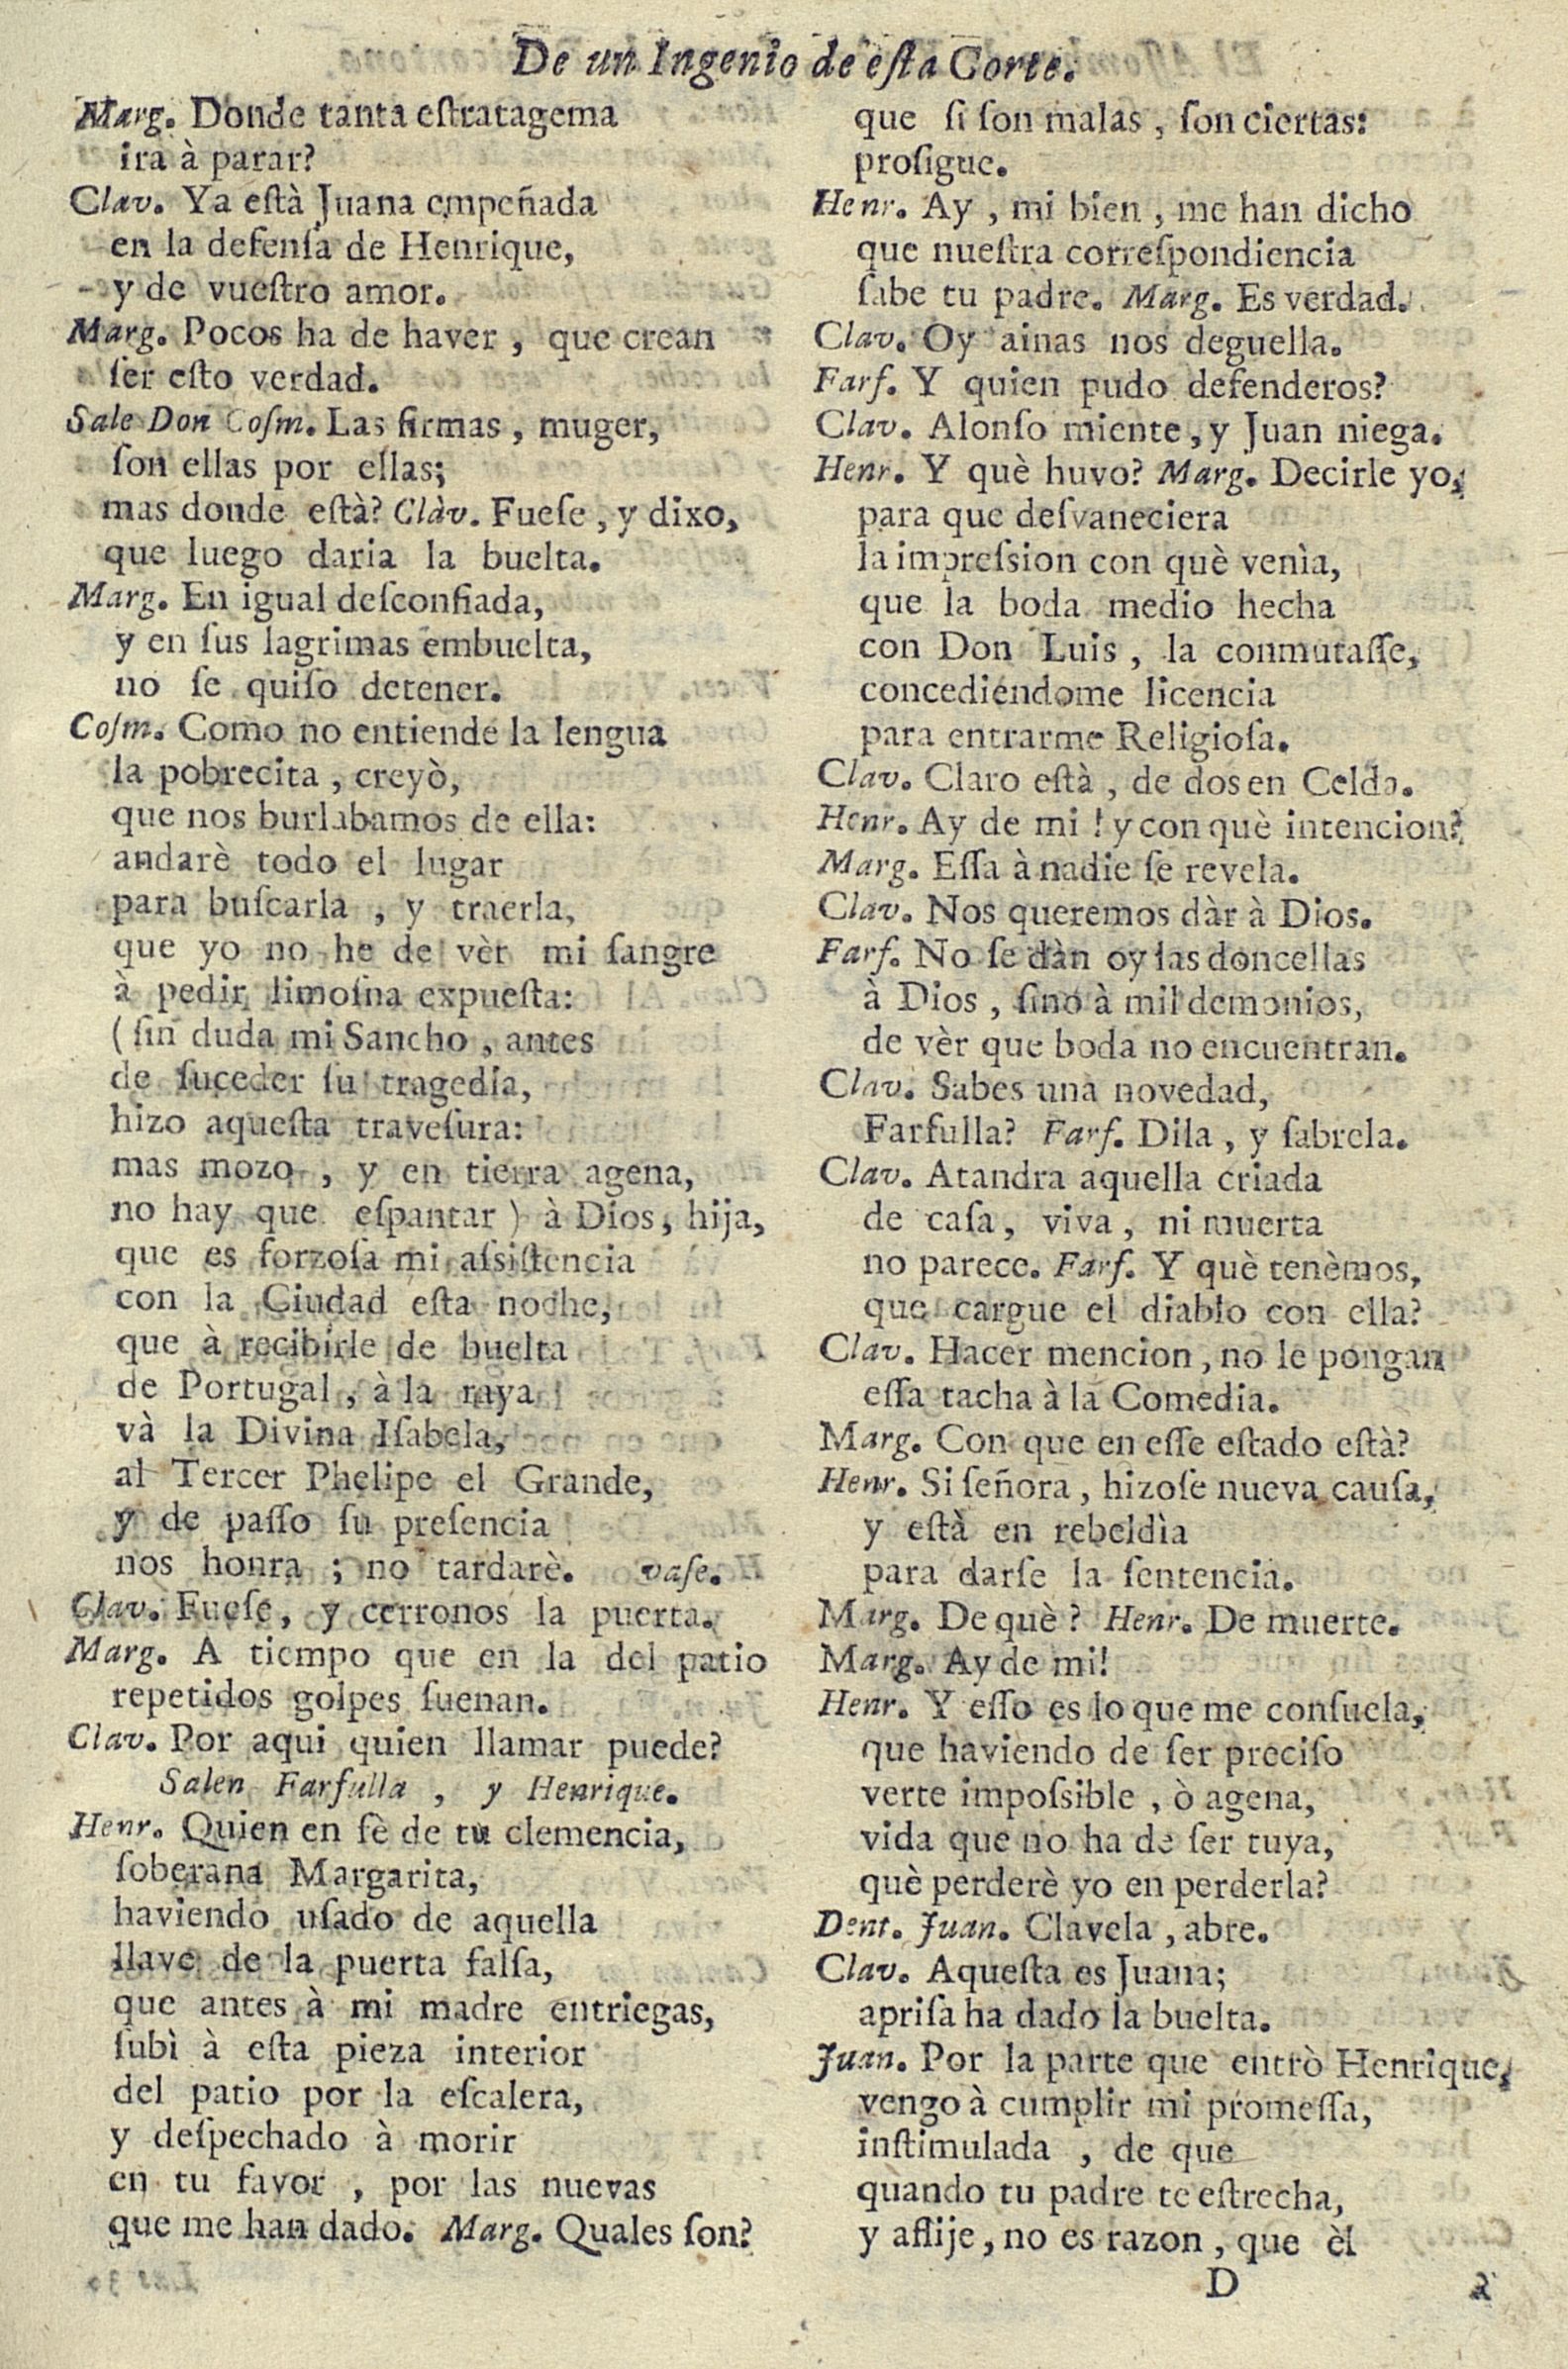 De un Ingenio de eſta Corte.
Marg. Donde tanta eſtratagema
ira à parar?
Clav. Ya eſtà Juana empeñada
en la defenſa de Henrique,
y de vueſtro amor.
Marg. Pocos ha de haver, que crean
ſer eſto verdad.
Sale Don Coſm. Las firmas, muger,
ſon ellas por ellas;
mas donde eſtà? Clàv. Fueſe, y dixo,
que luego daria la buelta.
Marg. En igual deſconfiada,
y en ſus lagrimas embuelta,
no ſe quiſo detener.
Coſm. Como no entiende la lengua
la pobrecita, creyò,
que nos burlabamos de ella:
andarè todo el lugar
para buſcarla, y traerla,
que yo no he de vèr mi ſangre
à pedir limoſna expueſta:
(ſin duda mi Sancho, antes
de ſuceder ſu tragedia,
hizo aqueſta traveſura:
mas mozo, y en tierra agena,
no hay que eſpantar) à Dios, hija,
que es forzoſa mi aſsiſtencia
con la Ciudad eſta noche,
que à recibirle de buelta
de Portugal, à la raya
và la Divina Iſabela,
al Tercer Phelipe el Grande,
y de paſſo ſu preſencia
nos honra; no tardarè. vaſe.
Clav. Fueſe, y cerronos la puerta.
Marg. A tiempo que en la del patio
repetidos golpes ſuenan.
Clav. Por aqui quien llamar puede?
Salen Farfulla, y Henrique.
Henr. Quien en fè de tu clemencia,
ſoberana Margarita,
haviendo uſado de aquella
llave de la puerta falſa,
que antes à mi madre entriegas,
ſubì à eſta pieza interior
del patio por la eſcalera,
y deſpechado à morir
en tu favor, por las nuevas
que me han dado. Marg. Quales ſon?
que ſi ſon malas, ſon ciertas:
proſigue.
Henr. Ay, mi bien, me han dicho
que nueſtra correſpondiencia
ſabe tu padre. Marg. Es verdad.
Clav. Oy ainas nos deguella.
Farf. Y quien pudo defenderos?
Clav. Alonſo miente, y Juan niega.
Henr. Y què huvo? Marg. Decirle yo,
para que deſvaneciera
la impreſsion con què venìa,
que la boda medio hecha
con Don Luis, la conmutaſſe,
concediendome licencia
para entrarme Religioſa.
Clav. Claro eſtà, de dos en Celda.
Henr. Ay de mi! y con què intencion?
Marg. Eſſa à nadie ſe revela.
Clav. Nos queremos dàr à Dios.
Farf. No ſe dàn oy las doncellas
à Dios, ſino à mil demonios,
de vèr que boda no encuentran.
Clav. Sabes una novedad,
Farfulla? Farf. Dila, y ſabrela.
Clav. Atandra aquella criada
de caſa, viva, ni muerta
no parece. Farf. Y què tenèmos,
que cargue el diablo con ella?
Clav. Hacer mencion, no le pongan
eſſa tacha à la Comedia.
Marg. Con que en eſſe eſtado eſtà?
Henr. Si ſeñora, hizoſe nueva cauſa,
y eſtà en rebeldìa
para darſe la ſentencia.
Marg. De què? Henr. De muerte.
Marg. Ay de mi!
Henr. Y eſſo es lo que me conſuela,
que haviendo de ſer preciſo
verte impoſsible, ò agena,
vida que no ha de ſer tuya,
què perderè yo en perderla?
Dent. Juan. Clavela, abre.
Clav. Aqueſta es Juana;
apriſa ha dado la buelta.
Juan. Por la parte que entrò Henrique,
vengo à cumplir mi promeſſa,
inſtimulada, de que
quando tu padre te eſtrecha,
y aflije, no es razon, que èl
D a